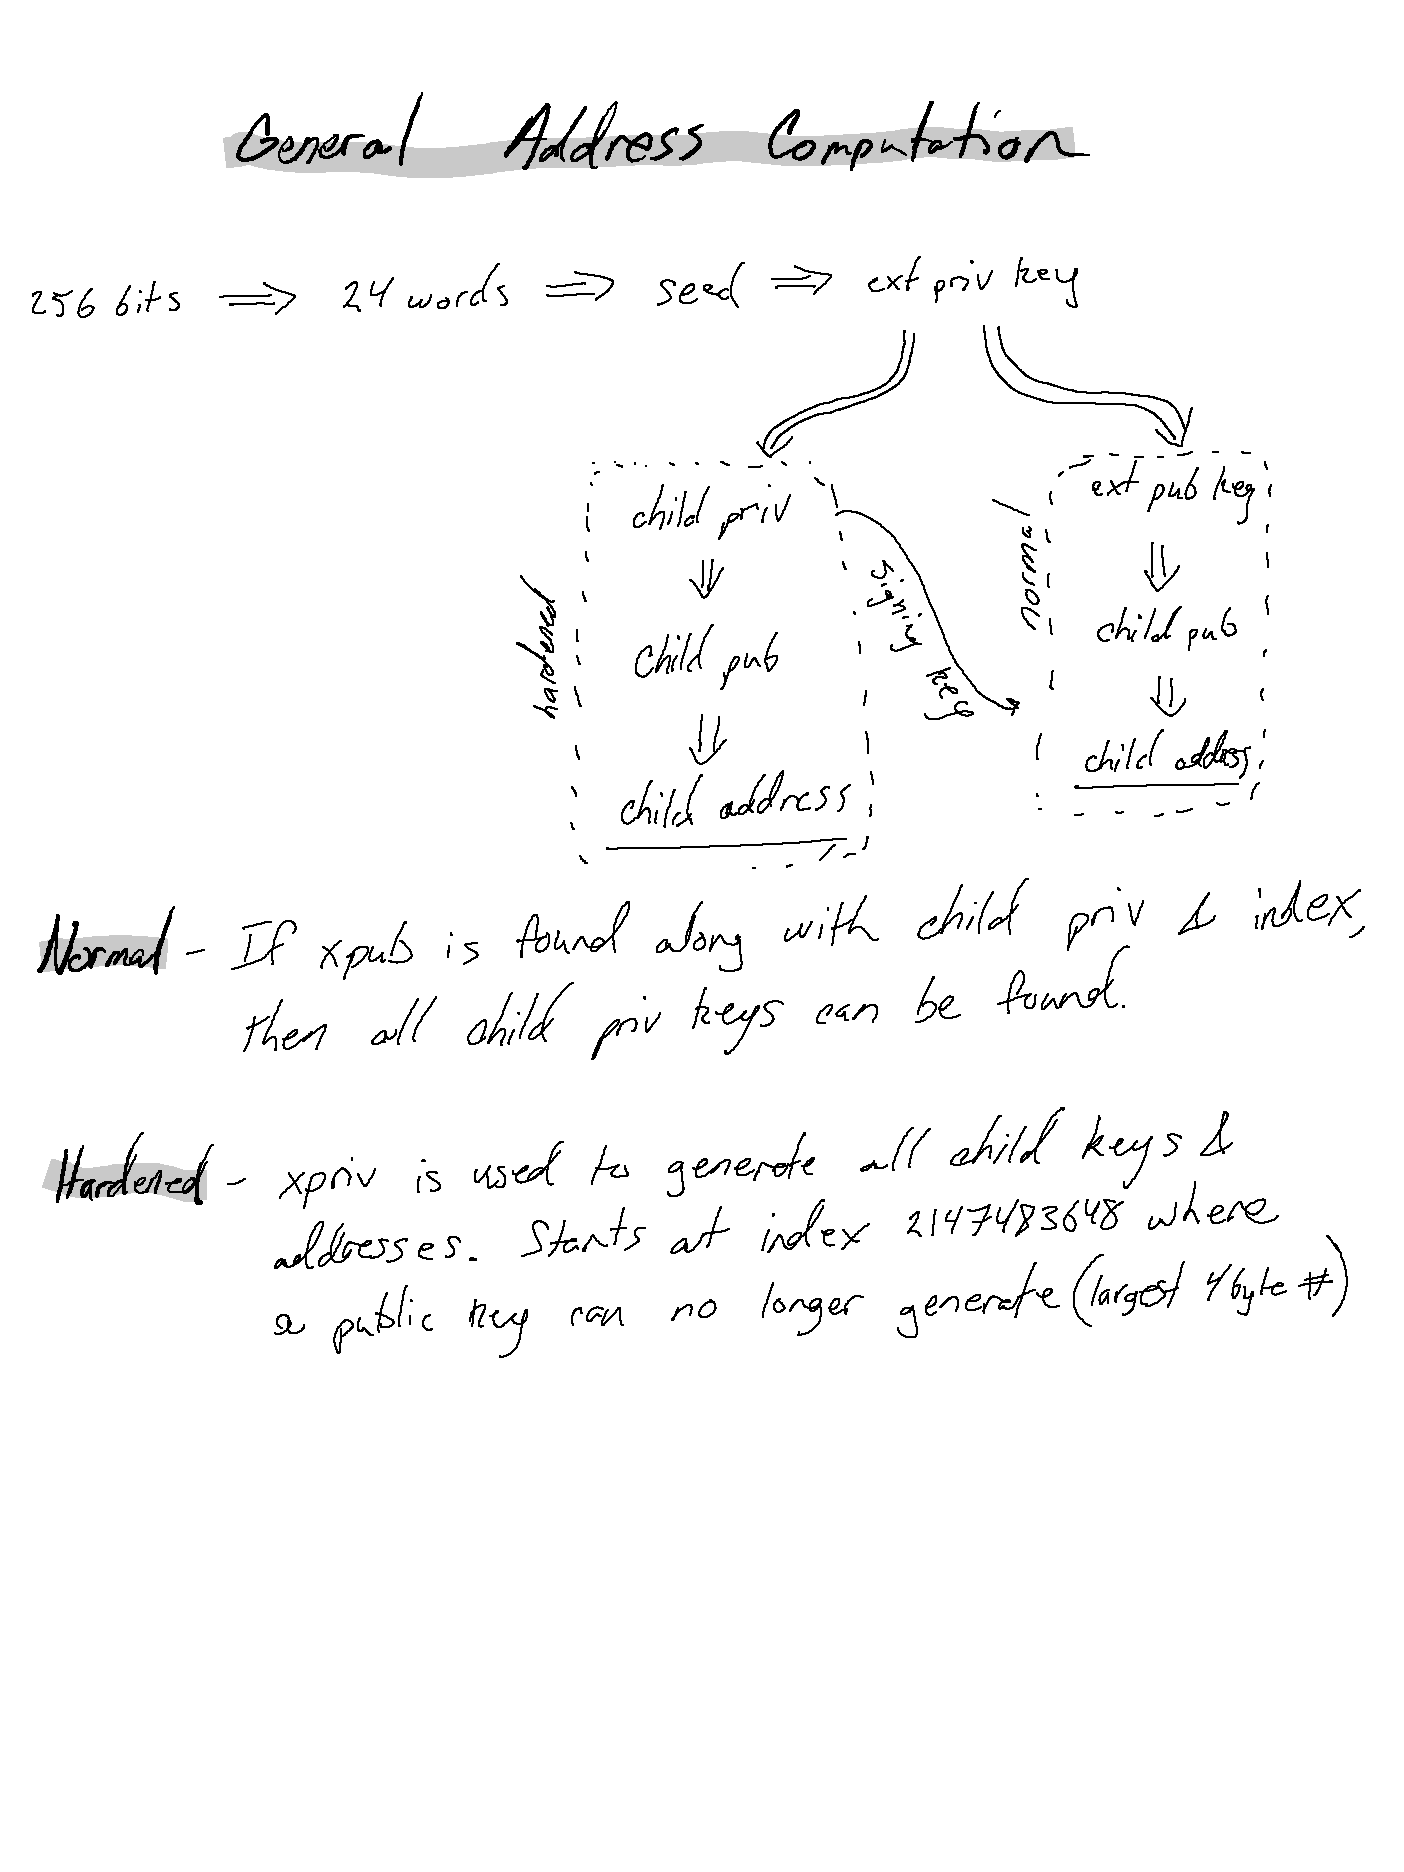 General Address Computation
256 bits ⇒ 24 words ⇒ seed ⇒ ext priv key
hardened
child priv
⇓
child pub
⇓
child address
signing key
normal
ext pub key
⇓
child pub
⇓
child address
Normal - If xpub is found along with child priv & index,
then all child priv keys can be found.
Hardened - xpriv is used to generate all child keys &
addresses. Starts at index 2147483648 where
a public key can no longer generate (largest 4 byte #)